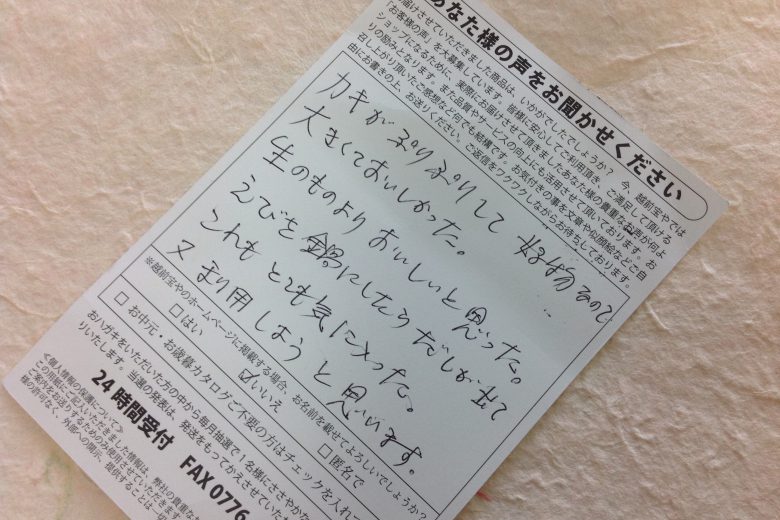 あなた様の声をお聞かせください
届けさせていただきました商品は、いかがでしたでしょうか？ 今、越前宝やでは
「お客様の声」を大募集しています。皆様に安心してご利用頂き、ご満足して頂ける
ショップになるために、実際にお届けさせて頂きましたあなた様の貴重なお声が何よ
りの励みとなります。また品質やサービスの向上にも活用させて頂いております。お
召し上がり頂いたご感想など何でも結構です。お気付きの事を文章や似顔絵などご自
由にお書きの上、お送りください。ご返信をワクワクしながらお待ちしております。
カキがぷりぷりして
大きくておいしかった。
生のものよりおいしいと思った。
えびを鍋にしたらだしが出て
これもとても気に入った。
又 利用しようと思います。
※越前宝やのホームページに掲載する場合、お名前を載せてよろしいでしょうか？
□はい ☑いいえ □匿名で
□ お中元・お歳暮カタログご不要の方はチェックを入れて
おハガキをいただいた方の中から毎月抽選で1名様にささやかな
りいたします。当選の発表は、発送をもってかえさせていただ
24時間受付 FAX 0776
≪個人情報の保護について≫
この用紙にご記入いただきました情報は、弊社の貴重な
ご案内をお送りするためのみ使用させていただきます
様の許可なく、外部への開示、提供することは一切